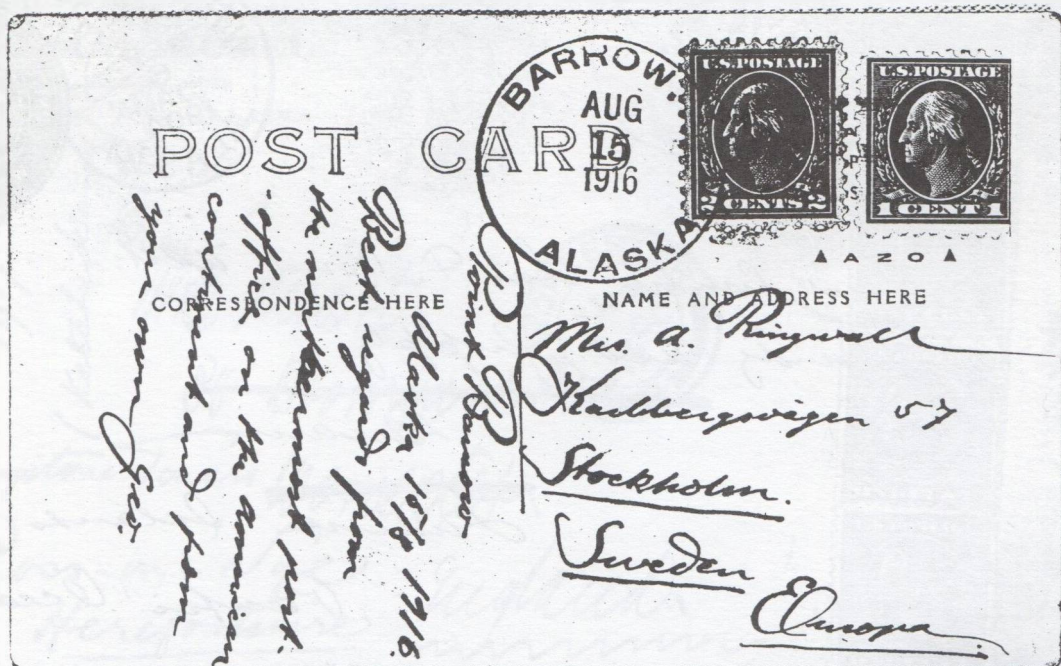 POST CARD
BARROW.
AUG
15
1916
ALASKA
U.S. POSTAGE
2 CENTS 2
U.S. POSTAGE
1 CENT 1
AZO
CORRESPONDENCE HERE
NAME AND ADDRESS HERE
Point Barrow
Alaska 15/8 1916.
Best regards from
the northernmost post
office on the American
continent and from
your own
Mrs. A. Ringwall
Karlbergsvägen 57
Stockholm.
Sweden
Europa